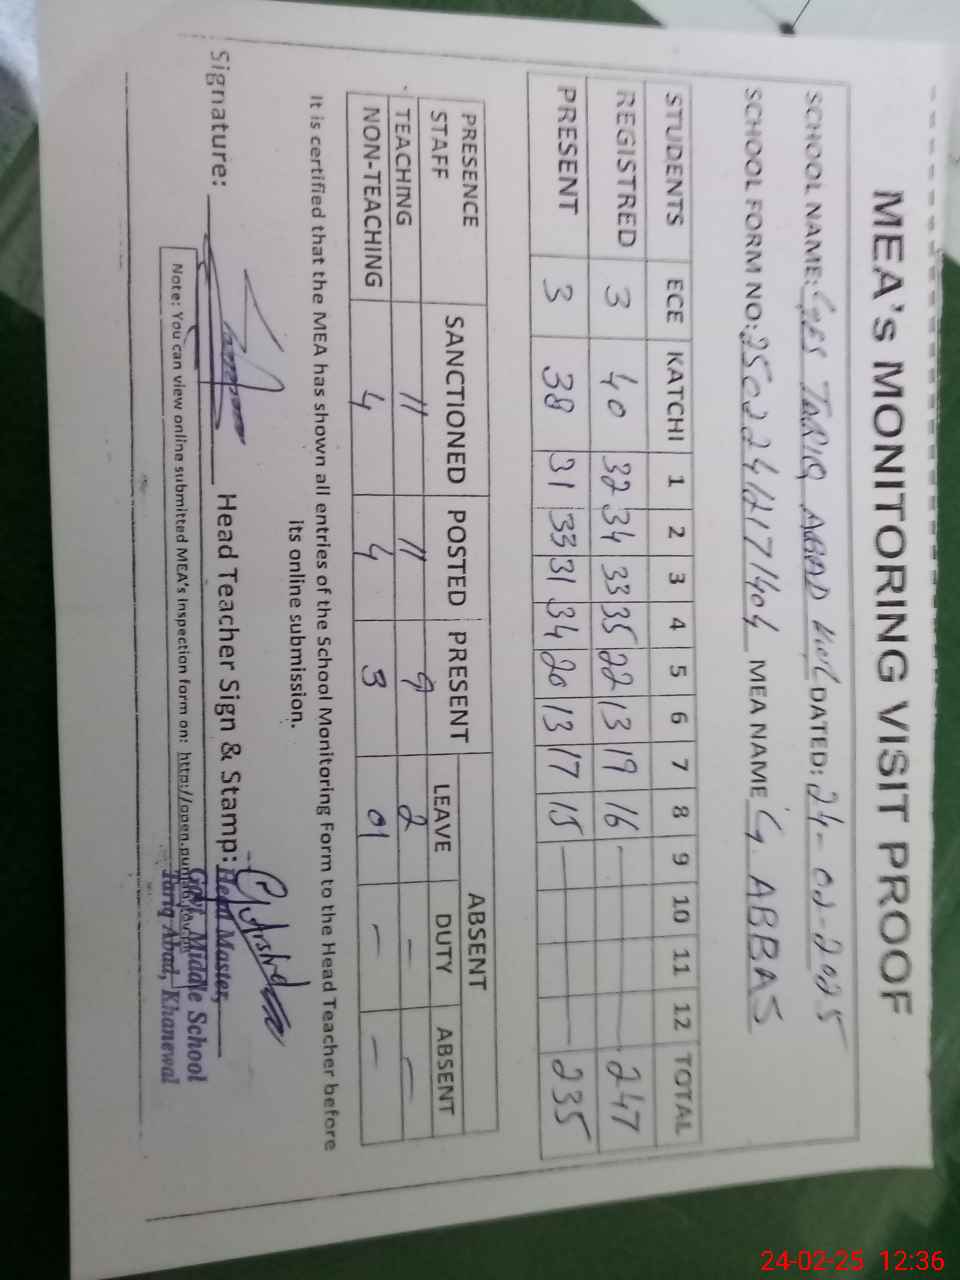 MEA's MONITORING VISIT PROOF
SCHOOL NAME: GES TARIQ ABAD KWL DATED: 24-02-2025
SCHOOL FORM NO: 25022412171404 MEA NAME G. ABBAS
STUDENTS ECE KATCHI 1 2 3 4 5 6 7 8 9 10 11 12 TOTAL
REGISTRED 3 40 32 34 33 35 22 13 19 16 247
PRESENT 3 38 31 33 31 34 20 13 17 15 235
PRESENCE STAFF SANCTIONED POSTED PRESENT ABSENT
LEAVE DUTY ABSENT
TEACHING 11 11 9 2 - -
NON-TEACHING 4 4 3 01 - -
It is certified that the MEA has shown all entries of the School Monitoring Form to the Head Teacher before
its online submission.
Signature: Head Teacher Sign & Stamp:
Head Master,
Govt. Middle School
Tariq Abad, Khanewal
Note: You can view online submitted MEA's Inspection form on: http://open.punjab.gov.pk
24-02-25 12:36